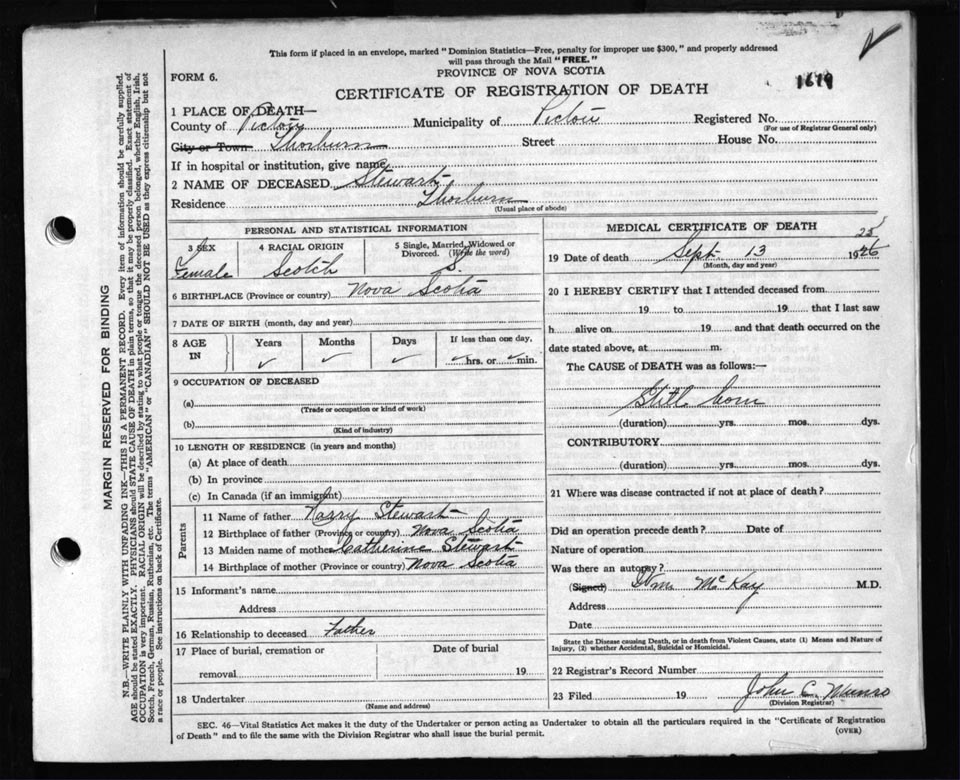 This form if placed in an envelope, marked "Dominion Statistics—Free, penalty for improper use $300," and properly addressed
will pass through the Mail "FREE."
FORM 6.
PROVINCE OF NOVA SCOTIA
1619
CERTIFICATE OF REGISTRATION OF DEATH
1 PLACE OF DEATH—
County of Pictou Municipality of Pictou Registered No.
(For use of Registrar General only)
City or Town Thorburn Street House No.
If in hospital or institution, give name
2 NAME OF DECEASED Stewart
Residence Thorburn
(Usual place of abode)
PERSONAL AND STATISTICAL INFORMATION
3 SEX 4 RACIAL ORIGIN 5 Single, Married, Widowed or
Divorced. (Write the word)
Female Scotch S.
6 BIRTHPLACE (Province or country) Nova Scotia
7 DATE OF BIRTH (month, day and year)
8 AGE IN Years Months Days If less than one day,
✓ ✓ ✓ ✓ hrs. or ✓ min.
9 OCCUPATION OF DECEASED
(a)
(Trade or occupation or kind of work)
(b)
(Kind of industry)
10 LENGTH OF RESIDENCE (in years and months)
(a) At place of death
(b) In province
(c) In Canada (if an immigrant)
Parents
11 Name of father Harry Stewart
12 Birthplace of father (Province or country) Nova Scotia
13 Maiden name of mother Catherine Stewart
14 Birthplace of mother (Province or country) Nova Scotia
15 Informant's name
Address
16 Relationship to deceased Father
17 Place of burial, cremation or Date of burial
removal 19
18 Undertaker
(Name and address)
MEDICAL CERTIFICATE OF DEATH
25
19 Date of death Sept. 13 1926
(Month, day and year)
20 I HEREBY CERTIFY that I attended deceased from
19 to 19 that I last saw
h alive on 19 and that death occurred on the
date stated above, at m.
The CAUSE of DEATH was as follows:—
Still born
(duration) yrs. mos. dys.
CONTRIBUTORY
(duration) yrs. mos. dys.
21 Where was disease contracted if not at place of death?
Did an operation precede death? Date of
Nature of operation
Was there an autopsy?
(Signed) Wm McKay M.D.
Address
Date
State the Disease causing Death, or in death from Violent Causes, state (1) Means and Nature of
Injury, (2) whether Accidental, Suicidal or Homicidal.
22 Registrar's Record Number
23 Filed 19 John C. Munro
(Division Registrar)
SEC. 46—Vital Statistics Act makes it the duty of the Undertaker or person acting as Undertaker to obtain all the particulars required in the "Certificate of Registration
of Death" and to file the same with the Division Registrar who shall issue the burial permit.
(OVER)
MARGIN RESERVED FOR BINDING
N.B.—WRITE PLAINLY WITH UNFADING INK—THIS IS A PERMANENT RECORD. Every item of information should be carefully supplied.
AGE should be stated EXACTLY. PHYSICIANS should STATE CAUSE OF DEATH in plain terms, so that it may be properly classified. Exact statement of
OCCUPATION is very important. RACIAL ORIGIN will be described by stating to what people or tongue the deceased person belonged, whether English, Irish,
Scotch, French, German, Russian, Ruthenian, etc. The terms "AMERICAN" or "CANADIAN" SHOULD NOT BE USED as they express citizenship but not
a race or people. See instructions on back of Certificate.